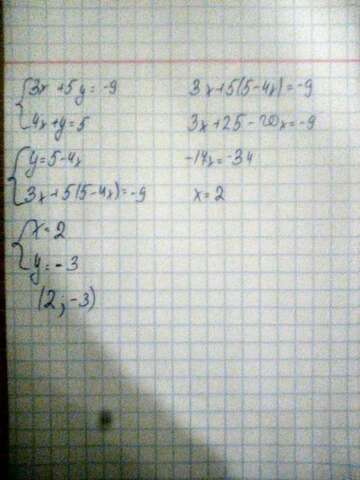 3x + 5y = -9
4x + y = 5
y = 5 - 4x
3x + 5(5 - 4x) = -9
x = 2
y = -3
(2; -3)
3x + 5(5 - 4x) = -9
3x + 25 - 20x = -9
-17x = -34
x = 2